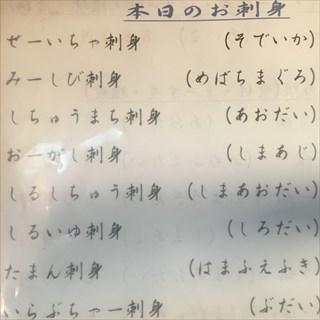 本日のお刺身
ぜーいちゃ刺身 (そでいか)
みーしび刺身 (めばちまぐろ)
しちゅうまち刺身 (あおだい)
おーがし刺身 (しまあじ)
しるしちゅう刺身 (しまあおだい)
しるいゆ刺身 (しろだい)
たまん刺身 (はまふえふき)
いらぶちゃー刺身 (ぶだい)